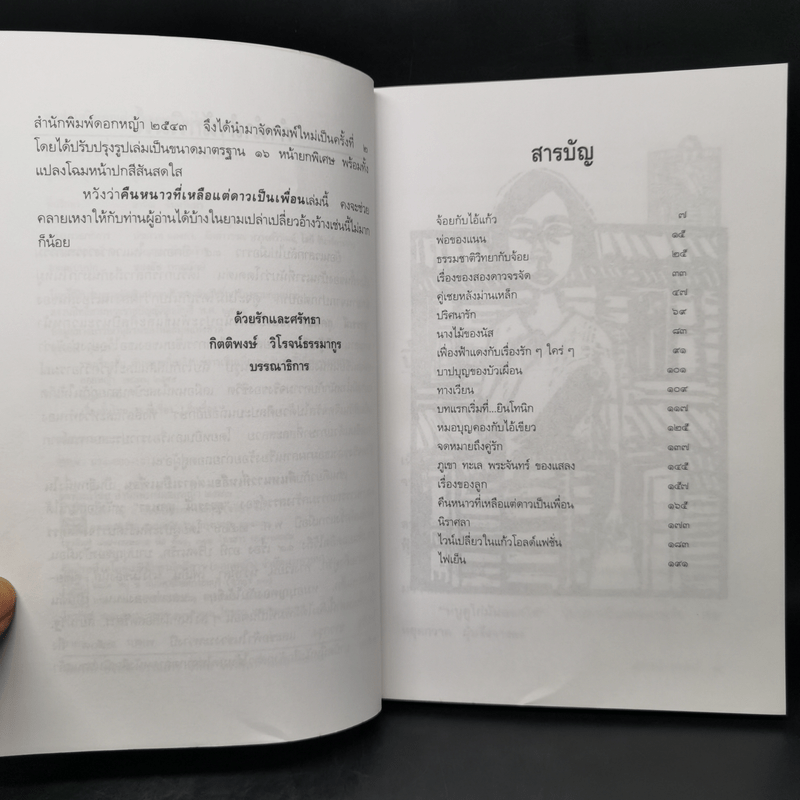 สำนักพิมพ์ดอกหญ้า ๒๕๔๓ จึงได้นำมาจัดพิมพ์ใหม่เป็นครั้งที่ ๒
โดยได้ปรับปรุงรูปเล่มเป็นขนาดมาตรฐาน ๑๖ หน้ายกพิเศษ พร้อมทั้ง
แปลงโฉมหน้าปกสีสันสดใส
หวังว่าคืนหนาวที่เหลือแต่ดาวเป็นเพื่อนเล่มนี้ คงจะช่วย
คลายเหงาให้กับท่านผู้อ่านได้บ้างในยามเปล่าเปลี่ยวอ้างว้างเช่นนี้ไม่มาก
ก็น้อย
ด้วยรักและศรัทธา
กิตติพงษ์ วิโรจน์ธรรมากูร
บรรณาธิการ
สารบัญ
จ้อยกับไอ้แก้ว ๗
พ่อของแนน ๑๕
ธรรมชาติวิทยากับจ้อย ๒๕
เรื่องของสองดาวจรจัด ๓๓
คู่เชยหลังม่านเหล็ก ๔๗
ปริศนารัก ๖๙
นางไม้ของนัส ๘๓
เฟื่องฟ้าแดงกับเรื่องรัก ๆ ใคร่ ๆ ๙๑
บาปบุญของบัวเผื่อน ๑๐๑
ทางเวียน ๑๐๙
บทแรกเริ่มที่...ยินโทนิก ๑๑๗
หมอบุญคองกับไอ้เขียว ๑๒๕
จดหมายถึงคู่รัก ๑๓๗
ภูเขา ทะเล พระจันทร์ ของแสลง ๑๔๕
เรื่องของลูก ๑๕๗
คืนหนาวที่เหลือแต่ดาวเป็นเพื่อน ๑๖๕
นิราศลา ๑๗๓
ไวน์เปลี่ยวในแก้วโอลด์แฟชั่น ๑๘๓
ไฟเย็น ๑๙๑